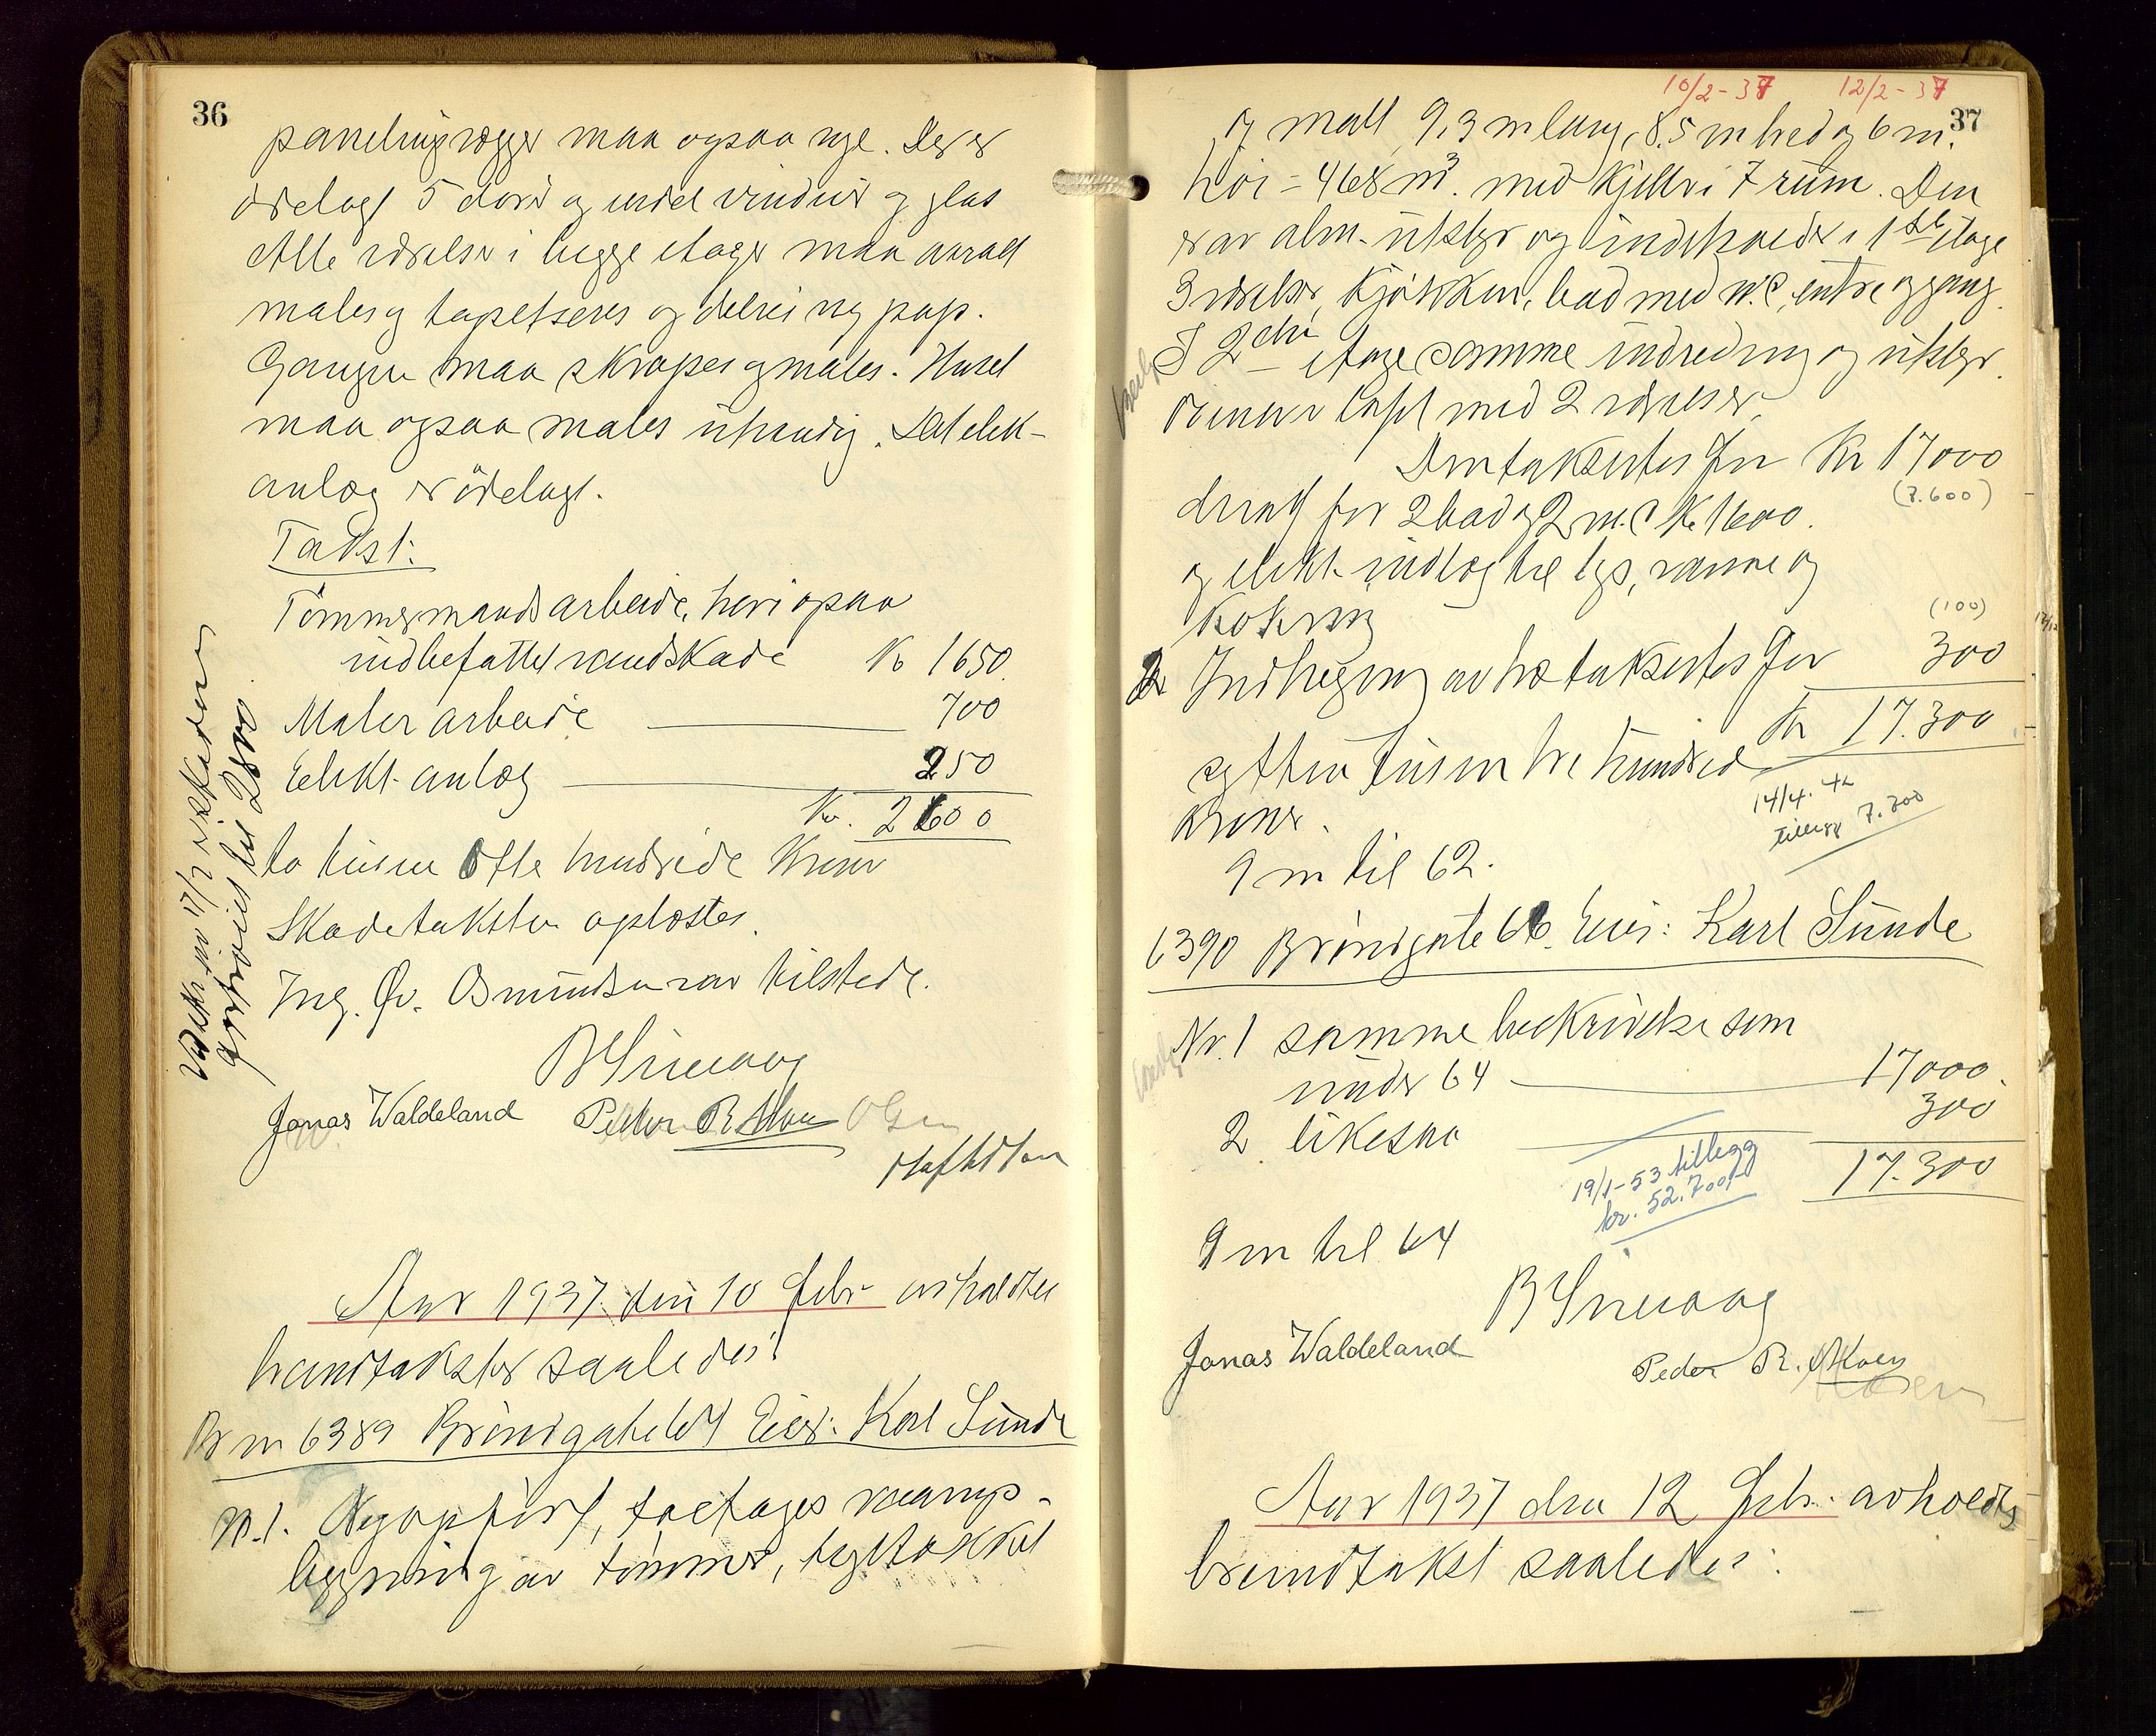 36
paneling vægger maa ogsaa nye. Der er
ødelagt 5 dører og endel vinduer og glas
Alle værelser i begge etager maa overalt
males og tapetseres og delvis ny pap.
Gangen maa skrapes og males. Huset
maa ogsaa males utvendig. Det elek-
anlæg er ødelagt.
Takst:
Tømmermands arbeide, heri ogsaa
indbefattet vandskade Kr 1650.
Maler arbeide 700
Elekt. anlæg 250
Kr. 2600
to tusen hundrede Kroner
Skadetaksten oplæstes.
Ing. Osmundsen var tilstede.
Jonas Waldeland
Aar 1937 den 10 Febr. avholdtes
brandtakster saaledes:
Br nr 6389 Brøndgate 64 Eier: Karl Sunde
Nr. 1. Nyopført, toetages vaanings-
bygning av tømmer, tegltækket
til 2800
10/2-37 12/2-37
37
og malt 9,3 m lang, 8.5 m bred og 6 m.
høi = 468 m³. med kjeller i 7 rum. Den
er av alm. utstyr og indeholder i 1ste etage
3 værelser, kjøkken, bad med W.C, entre og gang.
I 2den etage samme indredning og utstyr.
loft med 2 værelser.
Den taksertes for Kr 17000
(7.600)
herav for 2 bad og 2 W.C Kr. 1600.
og elekt. indlæg til lys, varme og
kokning
(100)
2. Indhegning av træ taksertes for 300
Kr 17.300
sytten tusen tre hundred
Kroner.
14/4. 42
tillegg 7.700
9 m til 62.
6390 Brøndgate 66. Eier: Karl Sunde
Nr. 1 samme beskrivelse som
under 64 17000.
2. likesaa 300
17.300
19/1-53 tillegg
kr. 52.700,-
9 m til 64
Jonas Waldeland
Peder R.
Aar 1937 den 12 Febr. avholdtes
brandtakst saaledes: